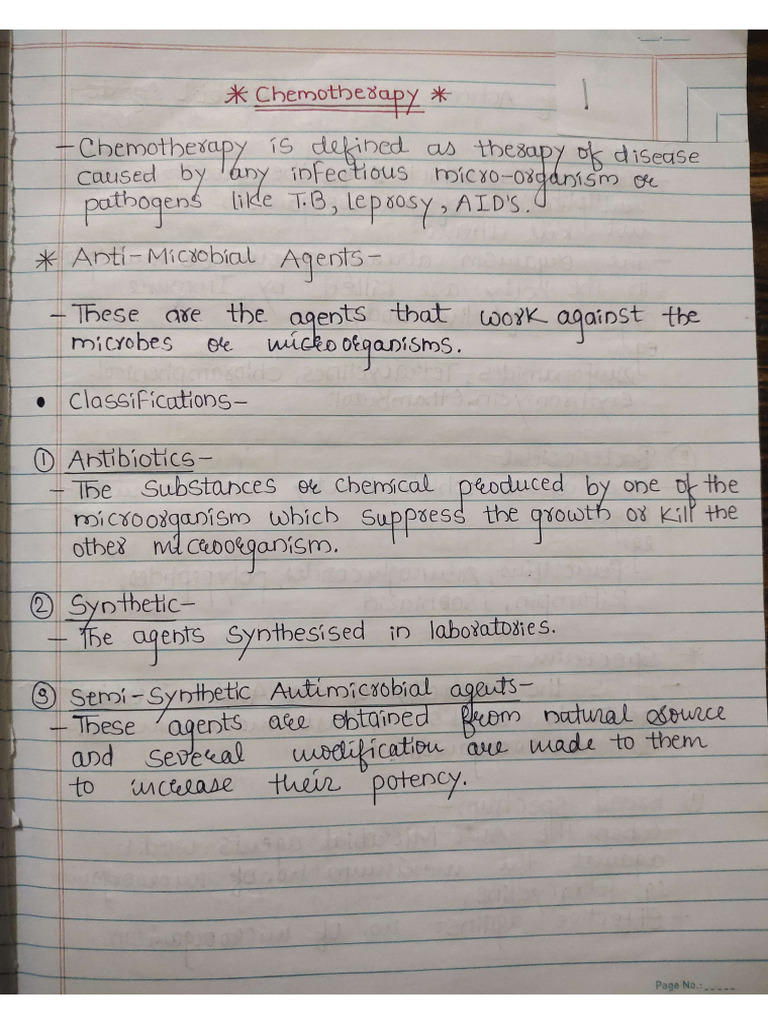 1
* Chemotherapy *
- Chemotherapy is defined as therapy of disease
caused by any infectious micro-organism or
pathogens like T.B, leprosy, AID'S.
* Anti-Microbial Agents-
- These are the agents that work against the
microbes or microorganisms.
• Classifications-
① Antibiotics-
- The substances or chemical produced by one of the
microorganism which suppress the growth or kill the
other microorganism.
② Synthetic-
- The agents synthesised in laboratories.
③ Semi-Synthetic Antimicrobial agents-
- These agents are obtained from natural source
and several modification are made to them
to increase their potency.
Page No.: